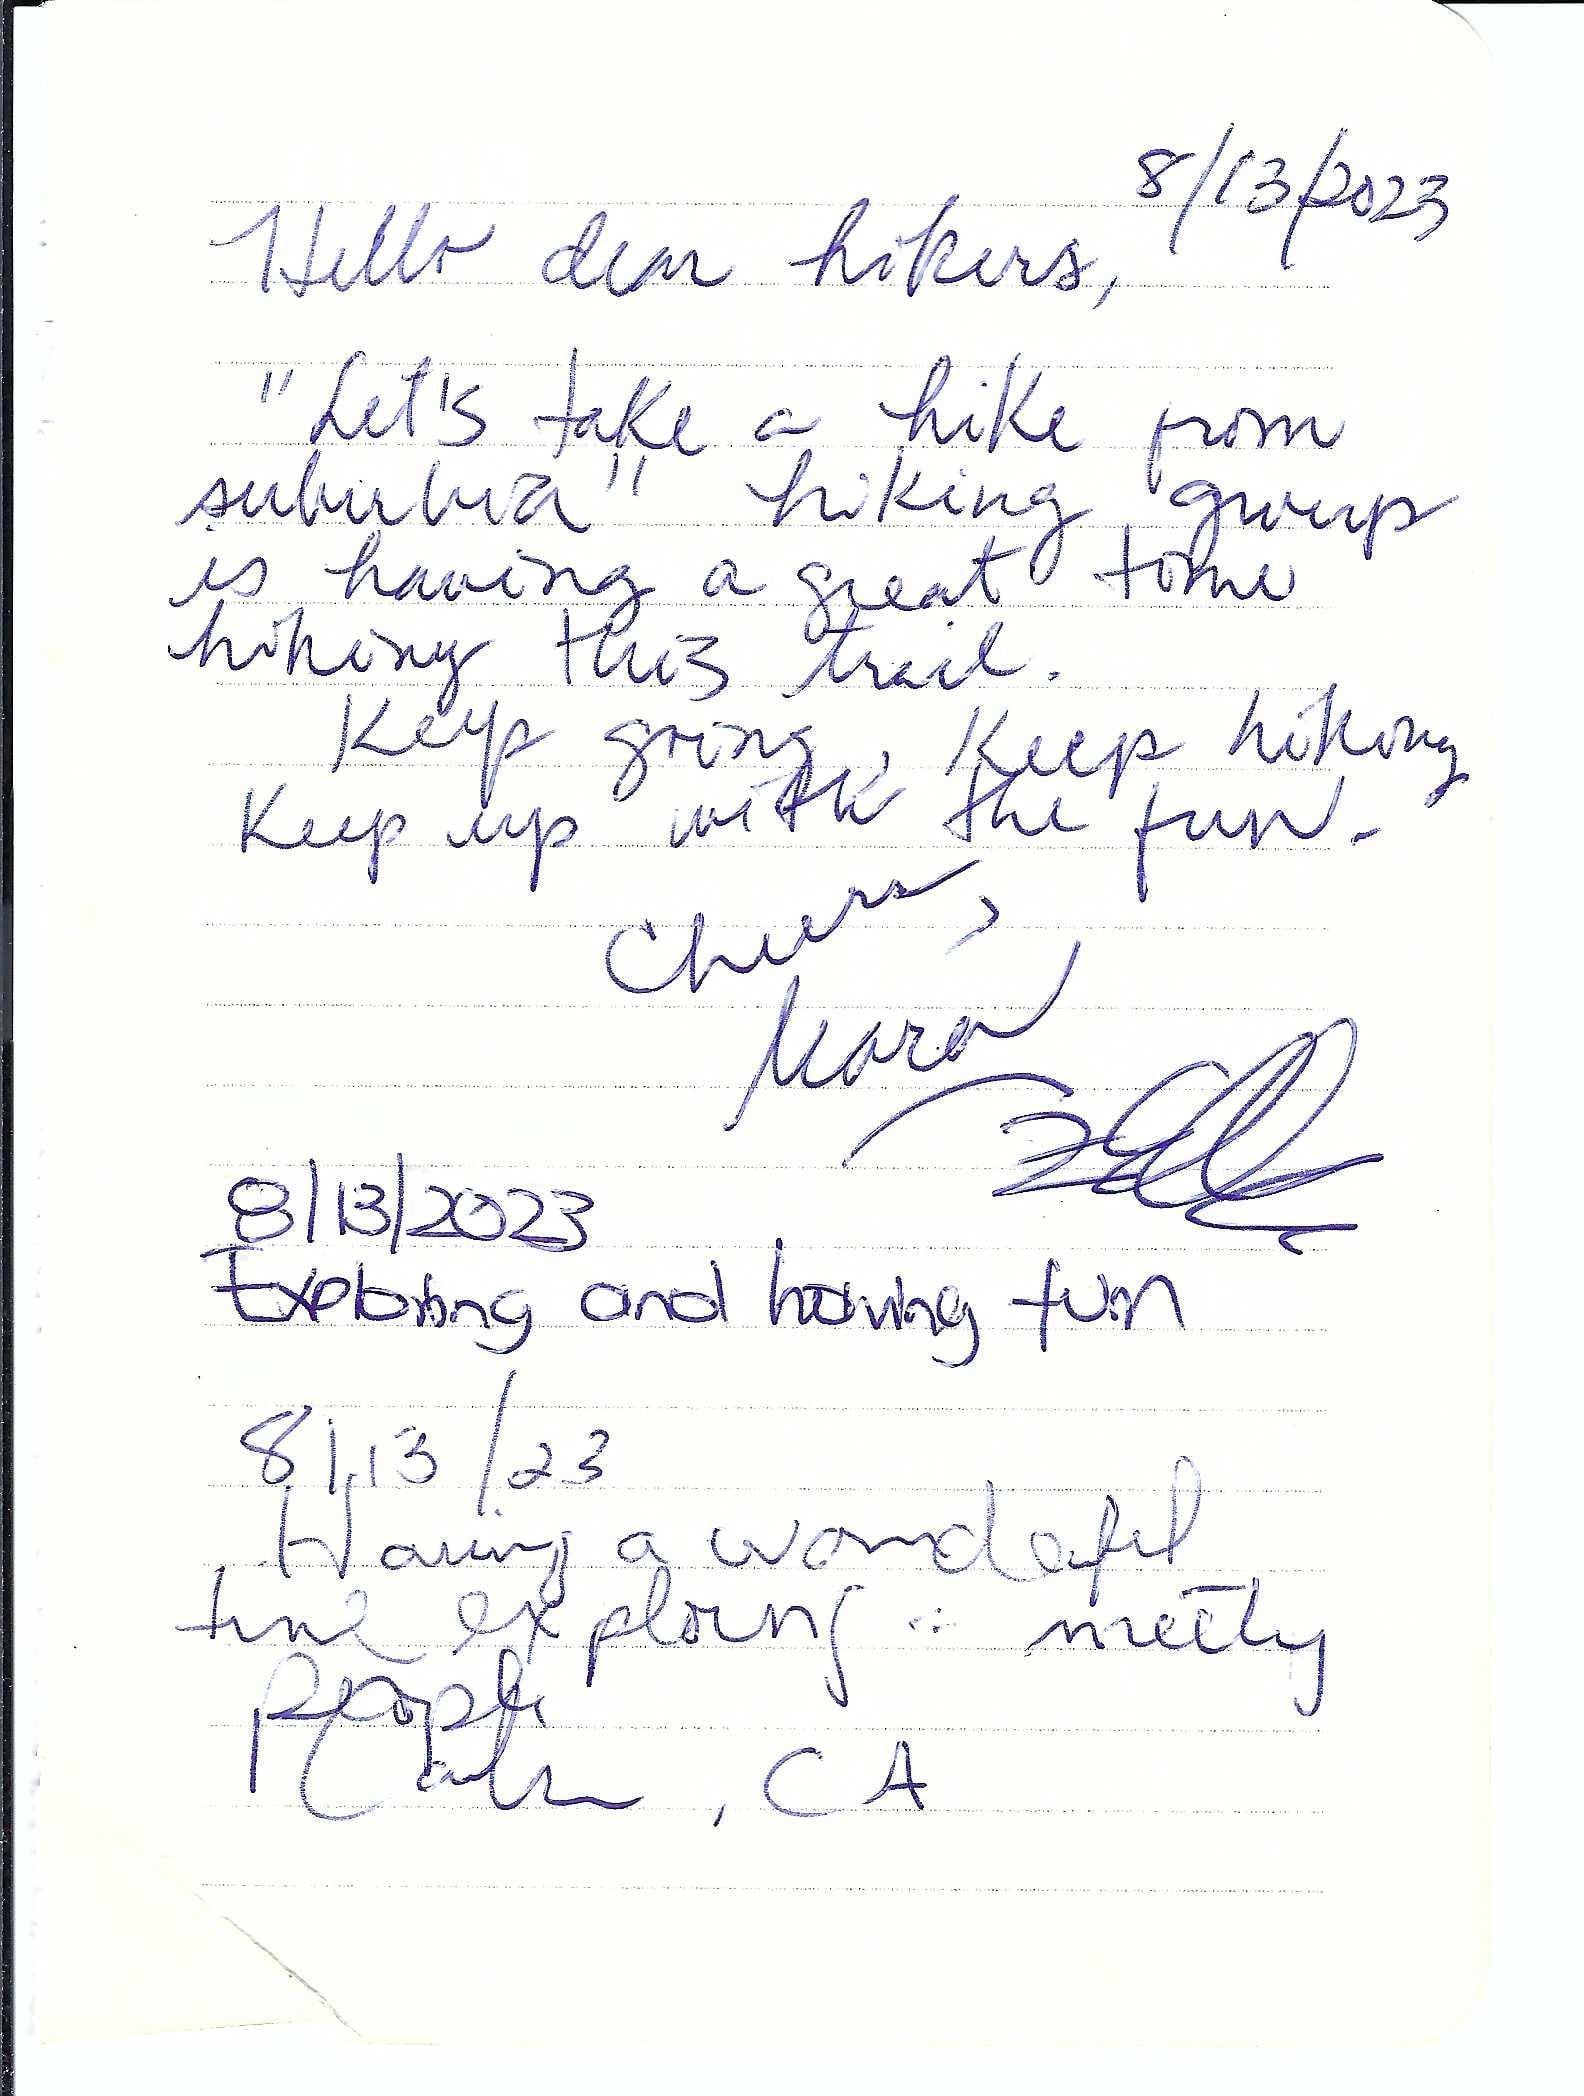 8/13/2023
Hello dear hikers,
"Let's take a hike from
suburbia" hiking group
is having a great time
hiking this trail.
Keep going, Keep hiking
Keep up with the fun.
Cheers,
8/13/2023
Exploring and having fun
8/13/23
Having a wonderful
time exploring meeting
people
, CA